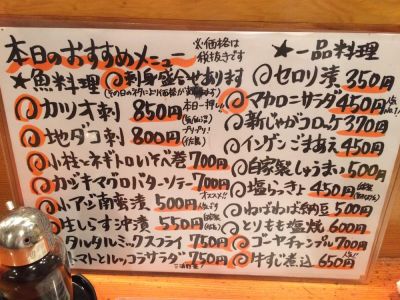 本日のおすすめメニュー
※価格は
税抜きです
★魚料理
刺身盛合せあります
カツオ刺 850円
地ダコ刺 800円
小柱とネギトロいそべ巻 700円
カヅキマグロバターソテー 700円
小アジ南蛮漬 500円
生しらす沖漬 550円
タルタルミックスフライ 750円
トマトとルッコラサラダ 750円
★一品料理
セロリ漬 350円
マカロニサラダ 450円
新じゃがコロッケ 370円
インゲンごまあえ 450円
自家製しゅうまい 500円
塩らっきょ 450円
ねばねば納豆 500円
とりもも塩焼 600円
ゴーヤチャンプル 700円
牛すじ煮込 650円